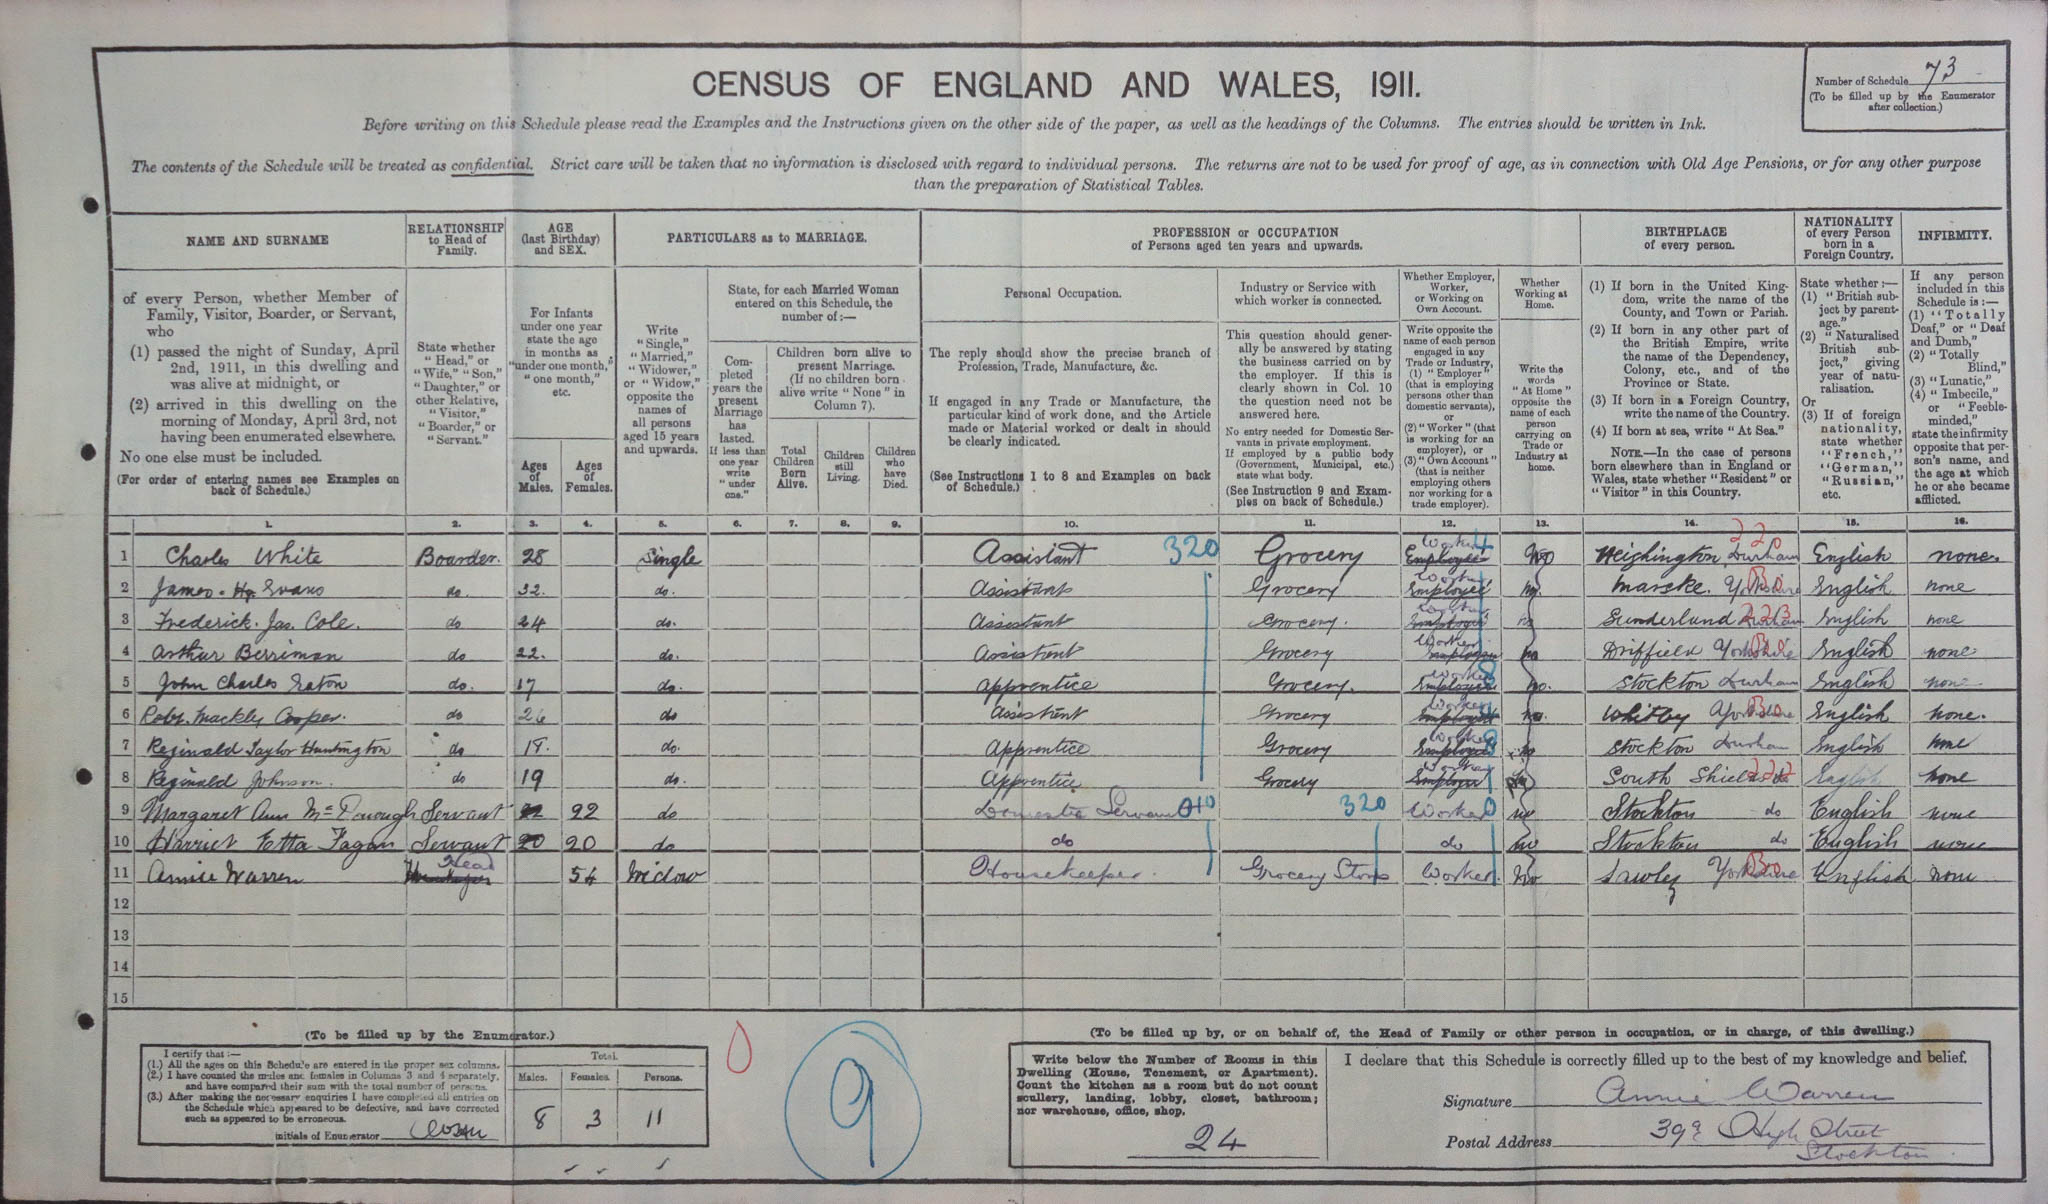 CENSUS OF ENGLAND AND WALES, 1911.
Number of Schedule 73
(To be filled up by the Enumerator
after collection.)
Before writing on this Schedule please read the Examples and the Instructions given on the other side of the paper, as well as the headings of the Columns. The entries should be written in Ink.
The contents of the Schedule will be treated as confidential. Strict care will be taken that no information is disclosed with regard to individual persons. The returns are not to be used for proof of age, as in connection with Old Age Pensions, or for any other purpose
than the preparation of Statistical Tables.
NAME AND SURNAME
of every Person, whether Member of
Family, Visitor, Boarder, or Servant,
who
(1) passed the night of Sunday, April
2nd, 1911, in this dwelling and
was alive at midnight, or
(2) arrived in this dwelling on the
morning of Monday, April 3rd, not
having been enumerated elsewhere.
No one else must be included.
(For order of entering names see Examples on
back of Schedule.)
RELATIONSHIP
to Head of
Family.
State whether
"Head," or
"Wife," "Son,"
"Daughter," or
other Relative,
"Visitor,"
"Boarder," or
"Servant."
AGE
(last Birthday)
and SEX.
For Infants
under one year
state the age
in months as
"under one month,"
"one month,"
etc.
Ages
of
Males.
Ages
of
Females.
PARTICULARS as to MARRIAGE.
Write
"Single,"
"Married,"
"Widower,"
or "Widow,"
opposite the
names of
all persons
aged 15 years
and upwards.
State, for each Married Woman
entered on this Schedule, the
number of:—
Com-
pleted
years the
present
Marriage
has
lasted.
If less than
one year
write
"under
one."
Children born alive to
present Marriage.
(If no children born
alive write "None" in
Column 7).
Total
Children
Born
Alive.
Children
still
Living.
Children
who
have
Died.
PROFESSION or OCCUPATION
of Persons aged ten years and upwards.
Personal Occupation.
The reply should show the precise branch of
Profession, Trade, Manufacture, &c.
If engaged in any Trade or Manufacture, the
particular kind of work done, and the Article
made or Material worked or dealt in should
be clearly indicated.
(See Instructions 1 to 8 and Examples on back
of Schedule.)
Industry or Service with
which worker is connected.
This question should gener-
ally be answered by stating
the business carried on by
the employer. If this is
clearly shown in Col. 10
the question need not be
answered here.
No entry needed for Domestic Ser-
vants in private employment.
If employed by a public body
(Government, Municipal, etc.)
state what body.
(See Instruction 9 and Exam-
ples on back of Schedule.)
Whether Employer,
Worker,
or Working on
Own Account.
Write opposite the
name of each person
engaged in any
Trade or Industry,
(1) "Employer"
(that is employing
persons other than
domestic servants),
or
(2) "Worker" (that
is working for an
employer), or
(3) "Own Account"
(that is neither
employing others
nor working for a
trade employer).
Whether
Working at
Home.
Write the
words
"At Home"
opposite the
name of each
person
carrying on
Trade or
Industry at
home.
BIRTHPLACE
of every person.
(1) If born in the United King-
dom, write the name of the
County, and Town or Parish.
(2) If born in any other part of
the British Empire, write
the name of the Dependency,
Colony, etc., and of the
Province or State.
(3) If born in a Foreign Country,
write the name of the Country.
(4) If born at sea, write "At Sea."
NOTE.—In the case of persons
born elsewhere than in England or
Wales, state whether "Resident" or
"Visitor" in this Country.
NATIONALITY
of every Person
born in a
Foreign Country.
State whether:—
(1) "British sub-
ject by parent-
age."
(2) "Naturalised
British sub-
ject," giving
year of natu-
ralisation.
Or
(3) If of foreign
nationality,
state whether
"French,"
"German,"
"Russian,"
etc.
INFIRMITY.
If any person
included in this
Schedule is:—
(1) "Totally
Deaf," or "Deaf
and Dumb,"
(2) "Totally
Blind,"
(3) "Lunatic,"
(4) "Imbecile,"
or "Feeble-
minded,"
state the infirmity
opposite that per-
son's name, and
the age at which
he or she became
afflicted.
1. 2. 3. 4. 5. 6. 7. 8. 9. 10. 11. 12. 13. 14. 15. 16.
1 Charles White Boarder. 28 Single Assistant 320 Grocery Worker Employee 4 No Heighington, Durham 220 English none.
2 James. Hy. Evans do. 32. do. Assistant Grocery Worker Employee no. Marske. Yorkshire English none
3 Frederick. Jas. Cole. do 24 do. Assistant Grocery. Worker no Sunderland Durham 223 English none
4 Arthur Berriman do 22. do. Assistant Grocery Worker Employee no Driffield Yorkshire English none
5 John Charles Eaton do. 17 do. Apprentice Grocery. Worker Employee 8 no. Stockton Durham English none
6 Robt. Mackley Cooper. do 26 do Assistant Grocery Worker no. Whitby Yorkshire English none.
7 Reginald Taylor Huntington do 18. do. Apprentice Grocery Worker 8 no Stockton Durham English none
8 Reginald Johnson. do 19 do. Apprentice Grocery Worker South Shields do 222 English none
9 Margaret Ann McDonough Servant 22 22 do Domestic Servant 320 Worker 0 no Stockton do English none
10 Harriet Etta Fagan Servant 20 20 do do do no Stockton do English none
11 Annie Warren Head 54 Widow Housekeeper. Grocery Stores Worker. No Sawley Yorkshire English none
12
13
14
15
(To be filled up by the Enumerator.)
I certify that:—
(1.) All the ages on this Schedule are entered in the proper sex columns.
(2.) I have counted the males and females in Columns 3 and 4 separately,
and have compared their sum with the total number of persons.
(3.) After making the necessary enquiries I have completed all entries on
the Schedule which appeared to be defective, and have corrected
such as appeared to be erroneous.
Initials of Enumerator
Total.
Males. Females. Persons.
8 3 11
0
9
(To be filled up by, or on behalf of, the Head of Family or other person in occupation, or in charge, of this dwelling.)
Write below the Number of Rooms in this
Dwelling (House, Tenement, or Apartment).
Count the kitchen as a room but do not count
scullery, landing, lobby, closet, bathroom;
nor warehouse, office, shop.
24
I declare that this Schedule is correctly filled up to the best of my knowledge and belief.
Signature Annie Warren
Postal Address 39a High Street
Stockton